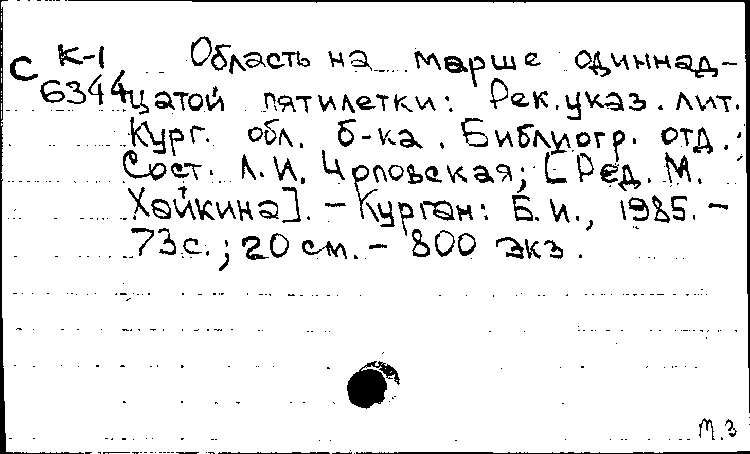 С К-1 Область на марше одиннад-
6344 цатой пятилетки: Рек. указ. лит.
Кург. обл. б-ка. Библиогр. отд.;
Сост. Л.И. Чловская; [Ред. М.
Хайкина]. - Курган: Б.и., 1985. -
73с.; 20 см. - 800 экз.
М.З